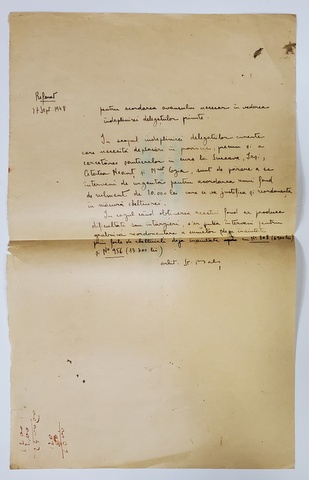 Referat
17 Sept. 1948
pentru acordarea avansului necesar în vederea
îndeplinirei delegațiilor primite
In scopul îndeplinirei delegațiilor
care necesită deplasări în provincie, precum și a
cercetărei șantierelor în curs la Suceava, Iași,
Cetatea Neamț și M-rea, sunt de părere a se
interveni de urgență pentru acordarea unui fond
de rulment de 10.000 lei care se va justifica și reordonanța
în măsura cheltuirei.
In cazul când obținerea acestui fond ar produce
dificultăți sau întârzieri, s'ar putea interveni pentru
grabnica reordonanțare a sumelor deja înaintate
prin foile de cheltuieli deja înaintate cu Nº 808
și Nº 956 (13.200 lei)
arhit.